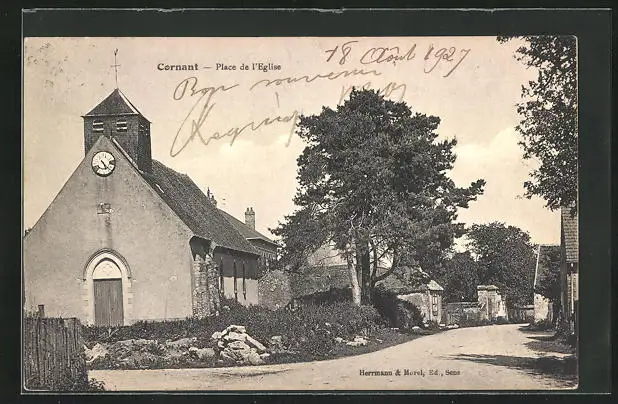 Cornant — Place de l'Eglise
18 Août 1927
Bon souvenir
Herrmann & Morel, Ed., Sens